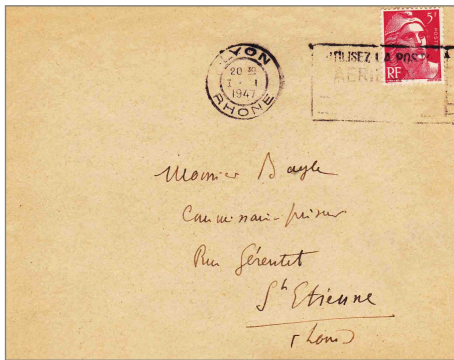 LYON
20 30
7 - 1
1947
RHONE
UTILISEZ LA POSTE
AERIENNE
5F
RF
Monsieur Bayle
Commissaire-priseur
Rue Gérentet
St Etienne